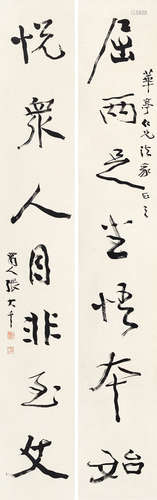 華亭仁兄法家正之
屈兩足坐悟本始
悦衆人目非至文
蜀人張大千